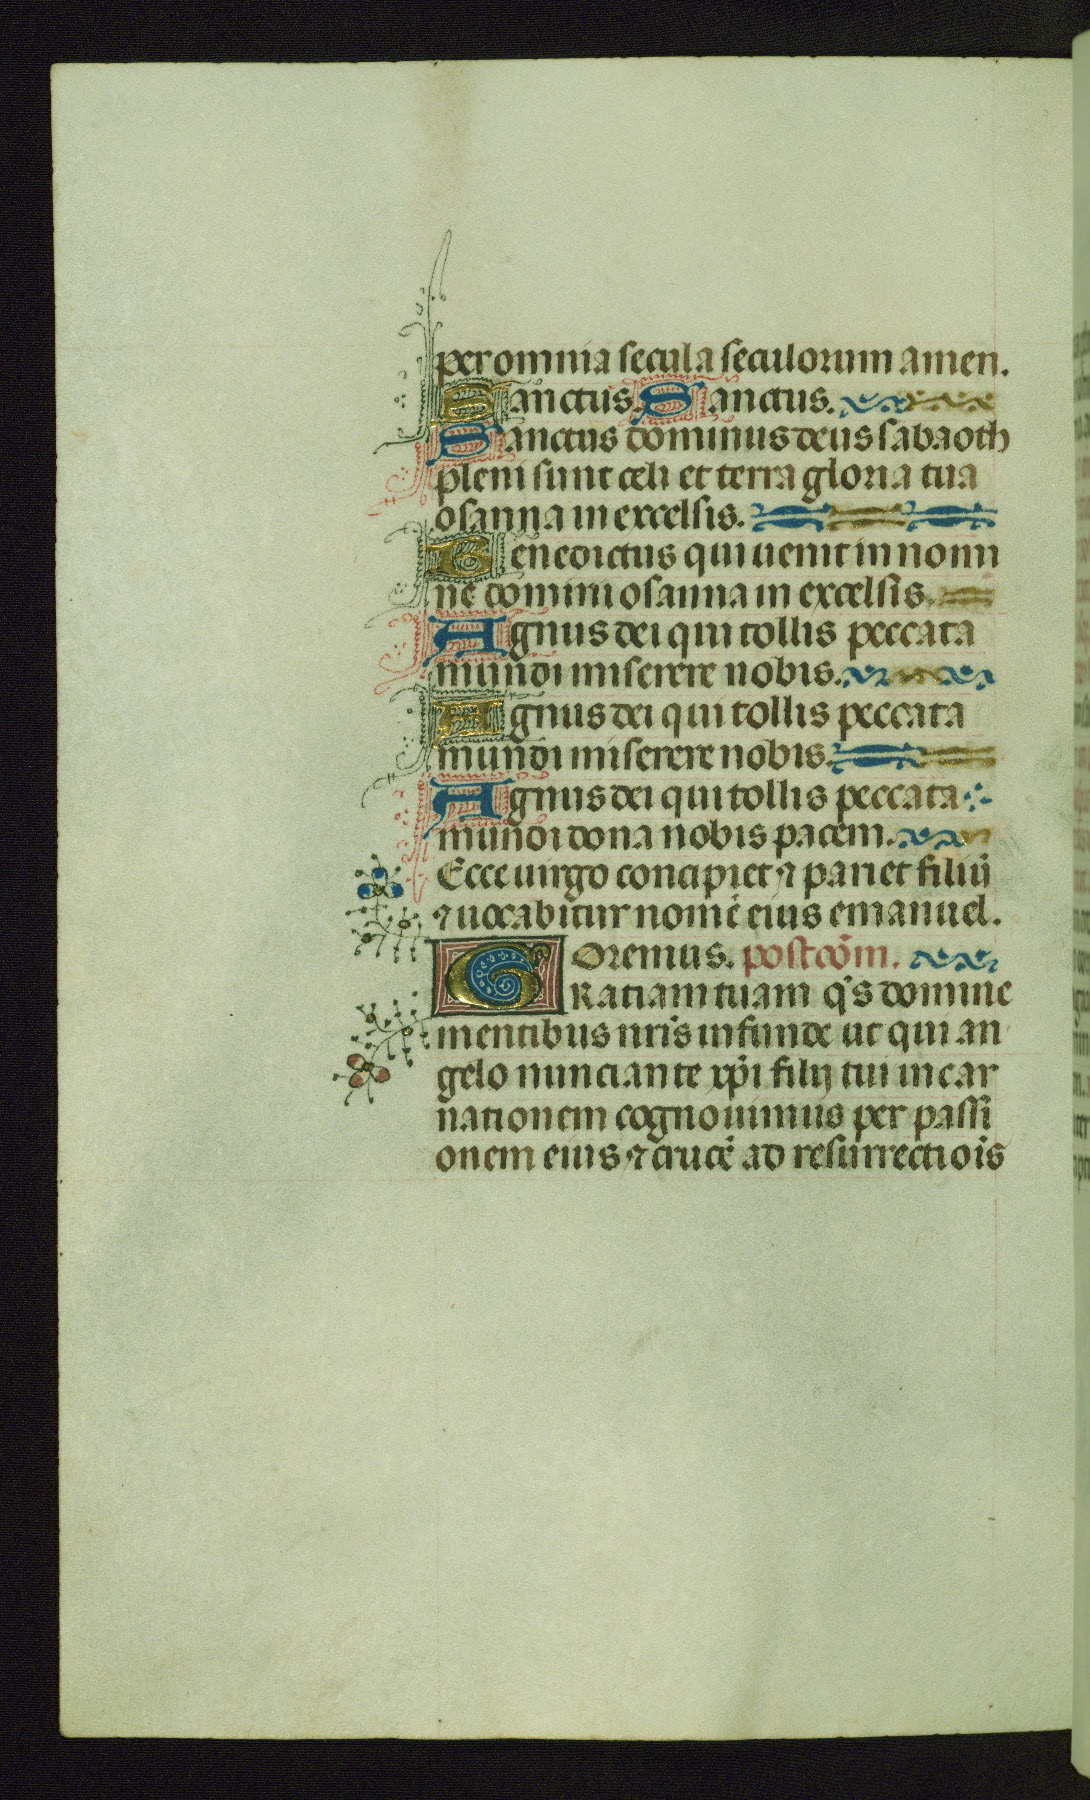 per omnia secula seculorum amen.
Sanctus. Sanctus.
Sanctus dominus deus sabaoth
pleni sunt celi et terra gloria tua
osanna in excelsis.
Benedictus qui uenit in nomi
ne domini osanna in excelsis.
Agnus dei qui tollis peccata
mundi miserere nobis.
Agnus dei qui tollis peccata
mundi miserere nobis.
Agnus dei qui tollis peccata
mundi dona nobis pacem.
Ecce uirgo concipiet ⁊ pariet filiū
⁊ uocabitur nomē eius emanuel.
Oremus. postcōm.
GRatiam tuam q̄s domine
mentibus nr̄is infunde ut qui an
gelo nunciante xp̄i filij tui incar
nationem cognouimus per passi
onem eius ⁊ crucē ad resurrectiōis